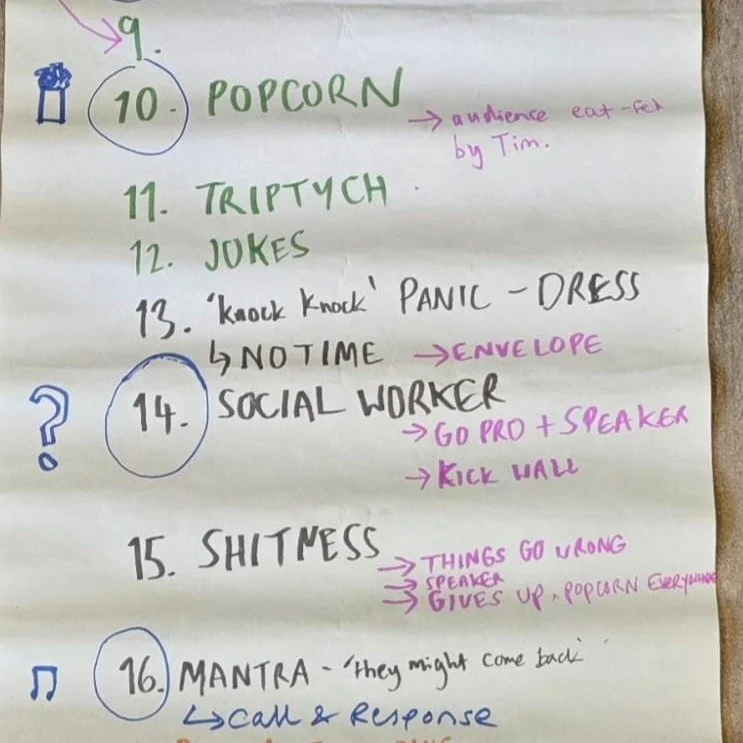 9.
10. POPCORN
→ audience eat-fed
by Tim.
11. TRIPTYCH
12. JOKES
13. 'knock knock' PANIC - DRESS
↳ NO TIME → ENVELOPE
? 14. SOCIAL WORKER
→ GO PRO + SPEAKER
→ KICK WALL
15. SHITNESS
→ THINGS GO WRONG
→ SPEAKER
→ GIVES UP, POPCORN EVERYWHERE
16. MANTRA - 'they might come back'
↳ Call & Response